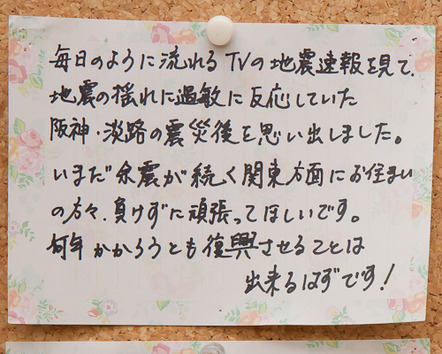 毎日のように流れるTVの地震速報を見て、
地震の揺れに過敏に反応していた
阪神・淡路の震災後を思い出しました。
いまだ余震が続く関東方面にお住まい
の方々、負けずに頑張ってほしいです。
何年かかろうとも復興させることは
出来るはずです!